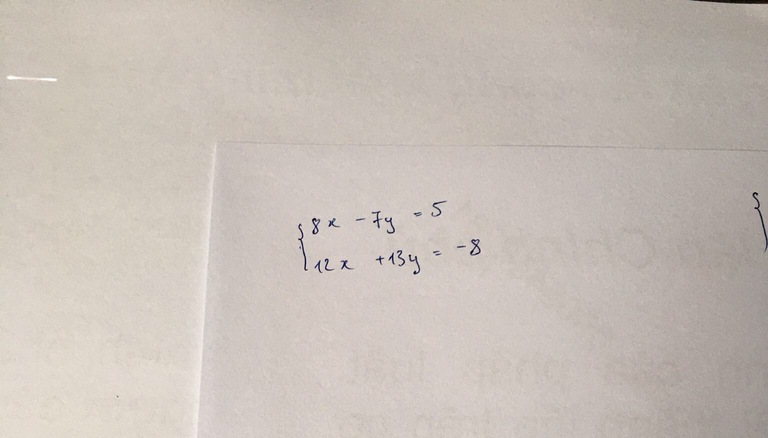 {8x - 7y = 5
12x + 13y = -8